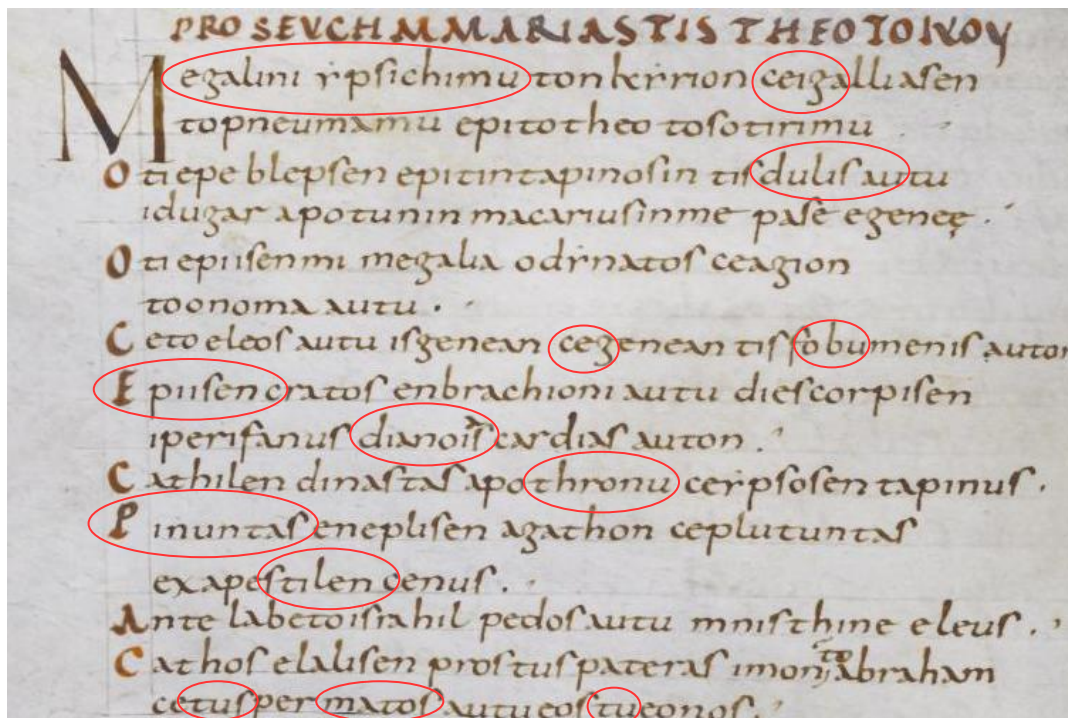 PROSEVCHMMARIASTISTHEOTOIVOV
Megalini ẏpsichimu ton kẏrion ceigalliasen
topneumamu epitotheo tosotirimu
Otiepe blepsen epitintapinosin tisdulis autu
idugar apotunin macariusinme pase egeneę .
Otiepiisenmi megalia odẏnatos ceagion
toonoma autu .
Ceto eleos autu isgenean cegenean tisfobumenis auton
Epiisen cratos enbrachioni autu diescorpisen
iperifanus dianoias cardias auton .
Cathilen dinastas apothronu ceẏpsosen tapinus .
Pinuntas eneplisen agathon ceplutuntas
exapestilen cenus .
Ante labetoisrahil pedos autu mnisthine eleus .
Cathos elalisen prostuspateras imon to Abraham
cetuspermatos autueostueonos .